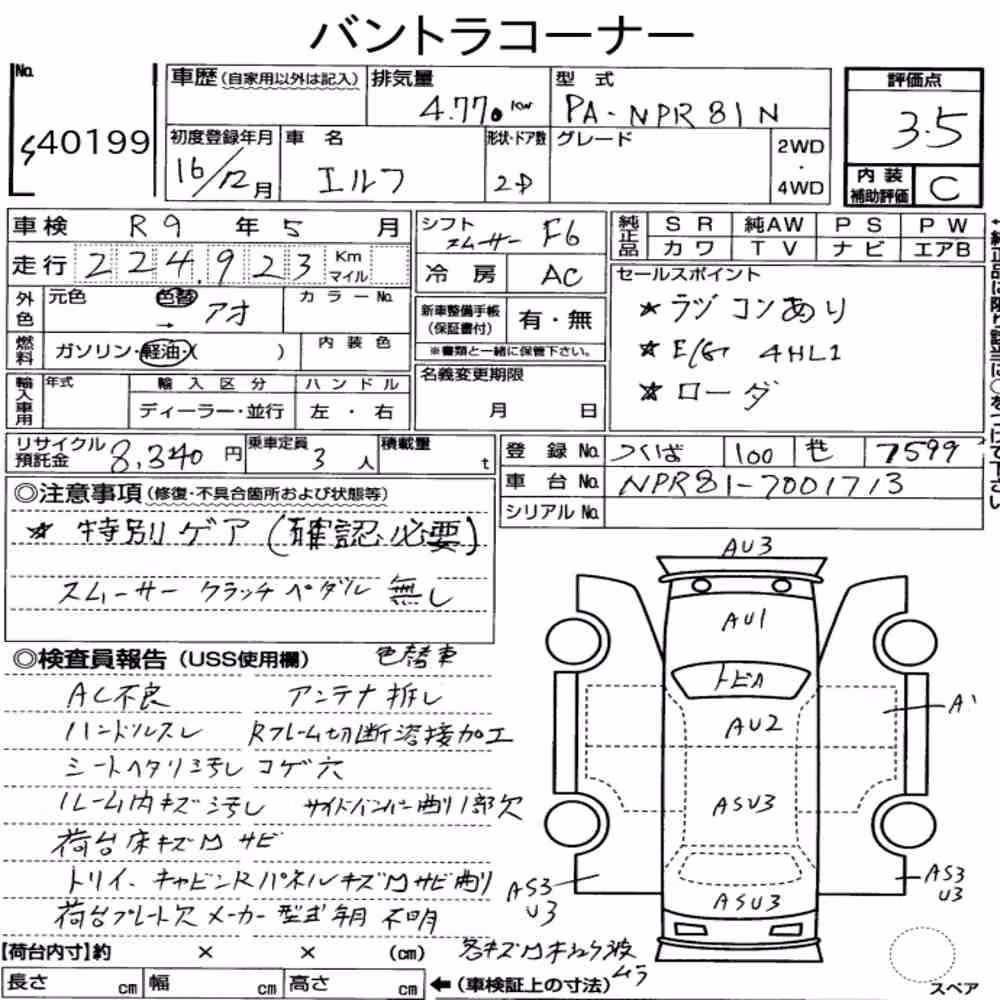 バントラコーナー
No.
540199
車歴(自家用以外は記入)
排気量
4.770 kw
型式
PA-NPR81N
評価点
3.5
初度登録年月
16/12月
車名
エルフ
形状・ドア数
2D
グレード
2WD
・
4WD
内装
補助評価
C
車検 R9年5月
シフト
スムーサー F6
純正品
SR 純AW PS PW
カワ TV ナビ エアB
走行 224,923 Km マイル
冷房 AC
セールスポイント
★ラジコンあり
★E/G 4HL1
★ローダ
外色
元色
色替
→ アオ
カラーNo.
新車整備手帳
(保証書付)
有・無
※書類と一緒に保管下さい。
燃料
ガソリン・軽油・( )
内装色
名義変更期限
月 日
輸入車用
年式
輸入区分
ハンドル
ディーラー・並行
左・右
リサイクル
預託金 8,340円
乗車定員
3人
積載量
t
登録No. つくば 100 せ 7599
車台No. NPR81-7001713
シリアルNo.
◎注意事項(修復・不具合箇所および状態等)
★ 特別ゲア(確認必要)
スムーサー クラッチペダル 無し
◎検査員報告(USS使用欄) 色替車
AC不良 アンテナ折れ
ハンドルスレ Rフレーム切断溶接加工
シートヘタリ汚れ コゲ穴
ルーム内キズ汚れ サイドバンパー曲り1部欠
荷台床キズM サビ
トリイ、キャビンRパネルキズMサビ曲り
荷台プレート欠 メーカー型式年月不明
【荷台内寸】約 × × (cm)
各キズM
長さ cm 幅 cm 高さ cm
←(車検証上の寸法)
ムラ
AU3
AU1
トビA
AU2
A1
ASU3
AS3
U3
AS3
U3
ASU3
スペア